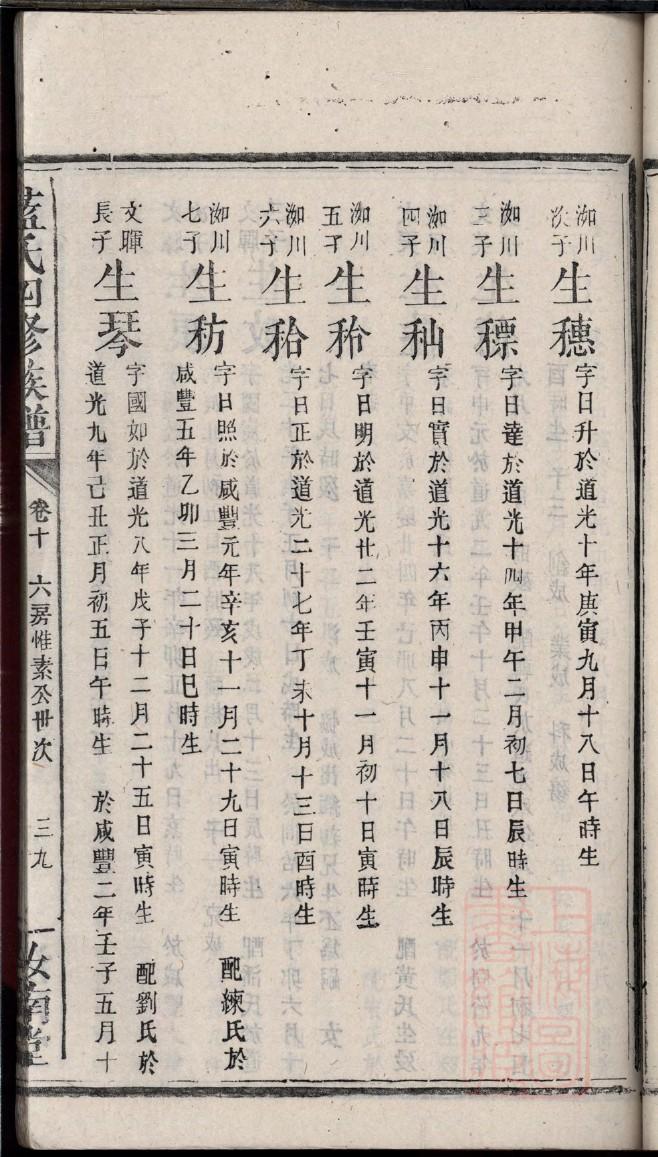 泇川次子
生穗
字日升於道光十年庚寅九月十八日午時生
泇川三子
生標
字日達於道光十四年甲午二月初七日辰時生
泇川四子
生秈
字日實於道光十六年丙申十一月十八日辰時生
泇川五子
生秢
字日明於道光廿二年壬寅十一月初十日寅時生
泇川六子
生秴
字日正於道光二十七年丁未十月十三日酉時生
泇川七子
生秿
字日照於咸豐元年辛亥十一月二十九日寅時生 配練氏於
咸豐五年乙卯三月二十日巳時生
文暉長子
生琴
字國如於道光八年戊子十二月二十五日寅時生 配劉氏於
道光九年己丑正月初五日午時生 於咸豐二年壬子五月十
藍氏四修族譜 卷十 六房惟素公世次 三九 汝南堂